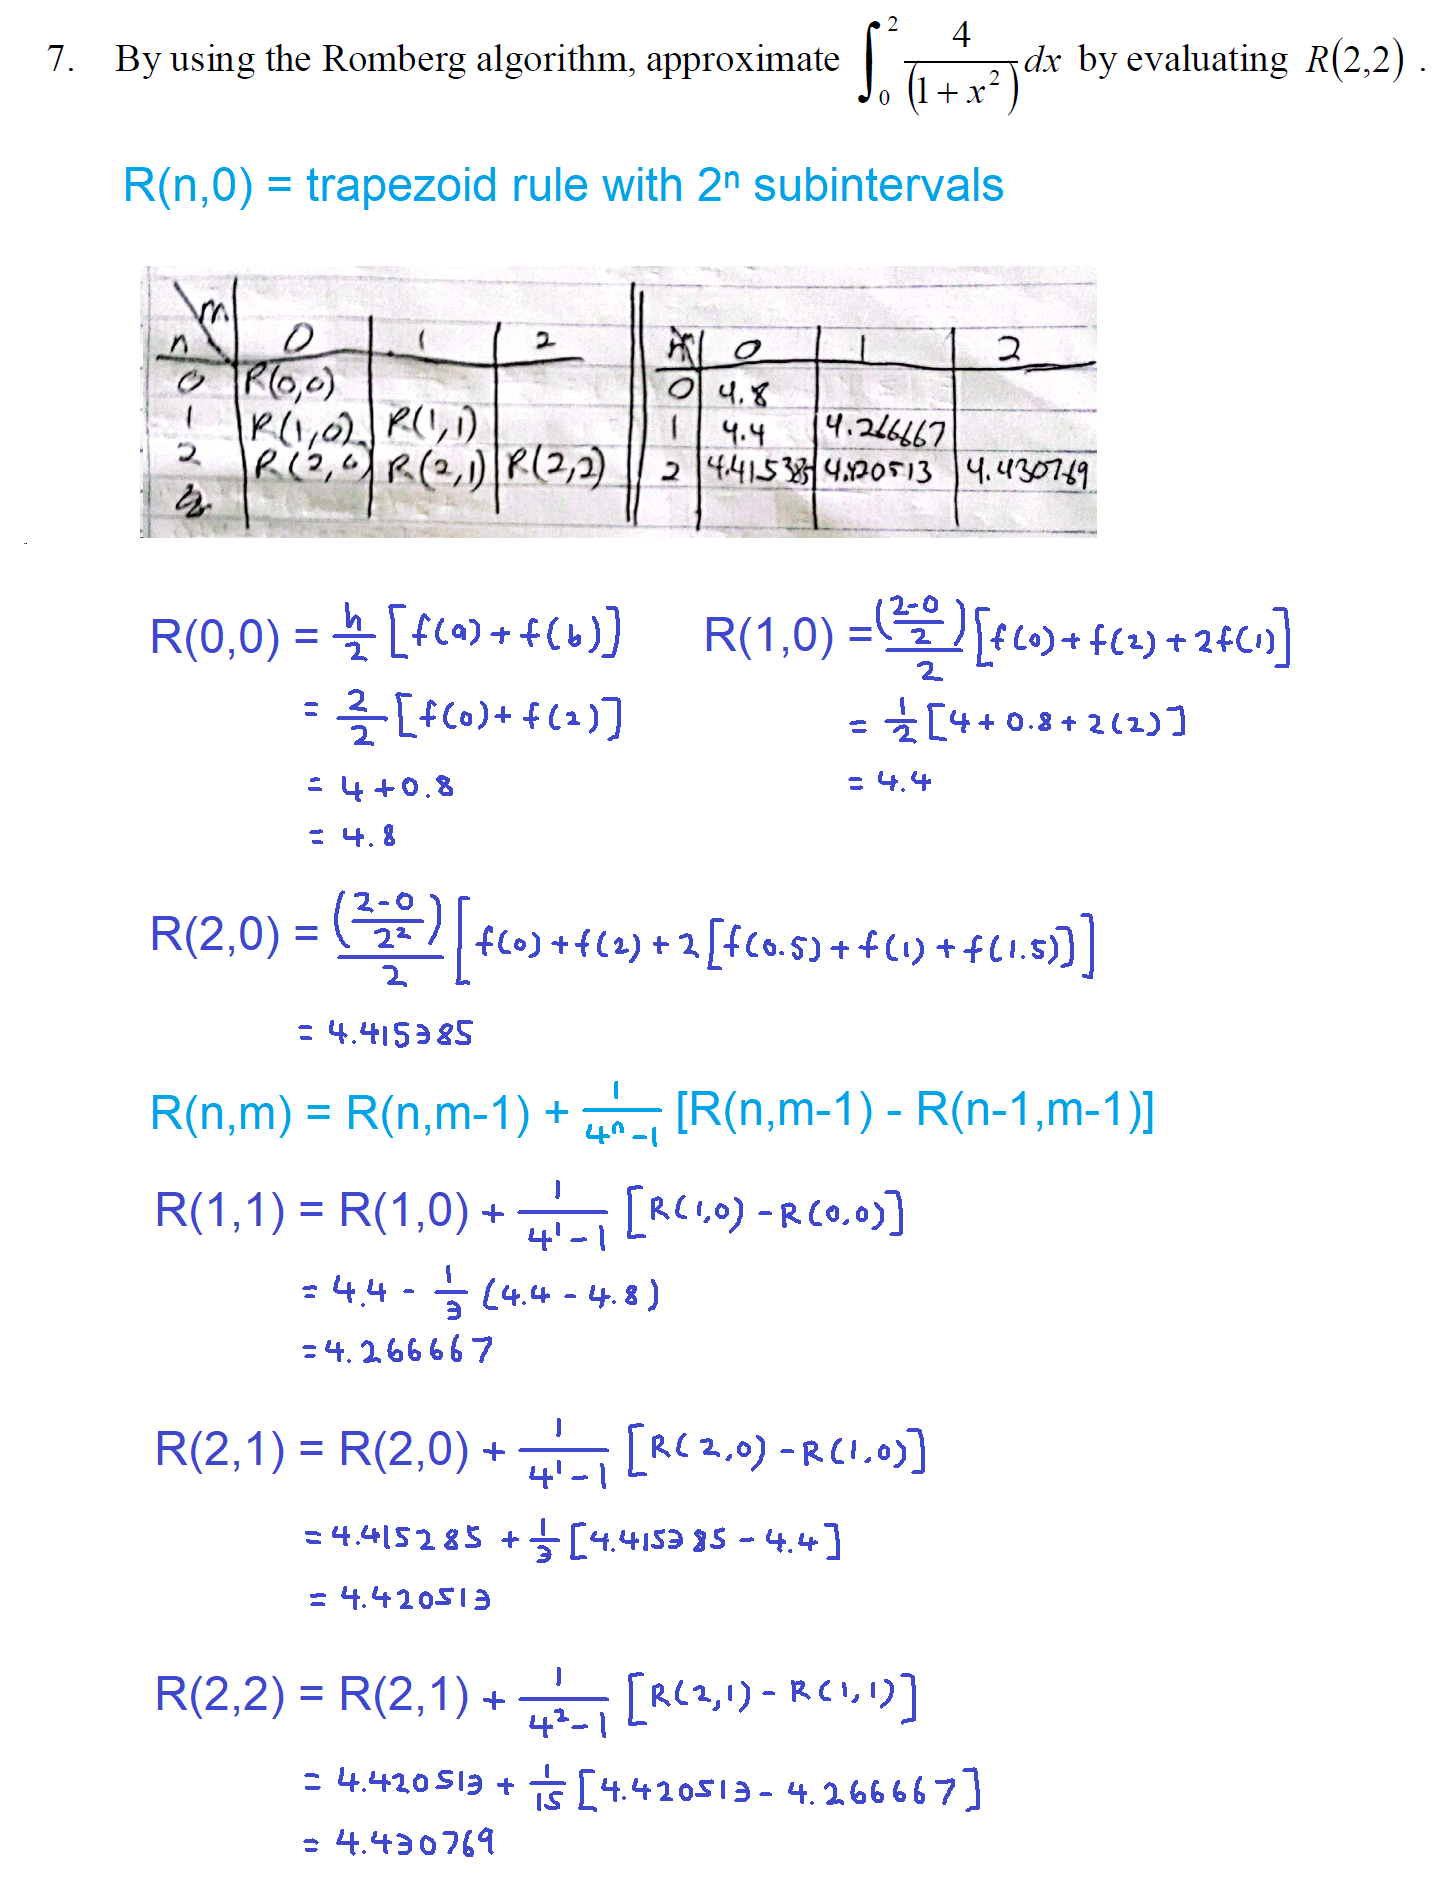 7. By using the Romberg algorithm, approximate ∫₀² 4/(1+x²) dx by evaluating R(2,2) .
R(n,0) = trapezoid rule with 2ⁿ subintervals
n\m 0 1 2 m 0 1 2
0 R(0,0) 0 4.8
1 R(1,0) R(1,1) 1 4.4 4.266667
2 R(2,0) R(2,1) R(2,2) 2 4.415385 4.420513 4.430769
R(0,0) = h/2 [f(a)+f(b)] R(1,0) = ((2-0)/2)/2 [f(0)+f(2)+2f(1)]
= 2/2 [f(0)+f(2)] = 1/2 [4+0.8+2(2)]
= 4+0.8 = 4.4
= 4.8
R(2,0) = ((2-0)/2²)/2 [f(0)+f(2)+2[f(0.5)+f(1)+f(1.5)]]
= 4.415385
R(n,m) = R(n,m-1) + 1/(4ⁿ-1) [R(n,m-1) - R(n-1,m-1)]
R(1,1) = R(1,0) + 1/(4¹-1) [R(1,0)-R(0,0)]
= 4.4 - 1/3 (4.4-4.8)
= 4.266667
R(2,1) = R(2,0) + 1/(4¹-1) [R(2,0)-R(1,0)]
= 4.415285 + 1/3 [4.415385-4.4]
= 4.420513
R(2,2) = R(2,1) + 1/(4²-1) [R(2,1)-R(1,1)]
= 4.420513 + 1/15 [4.420513-4.266667]
= 4.430769